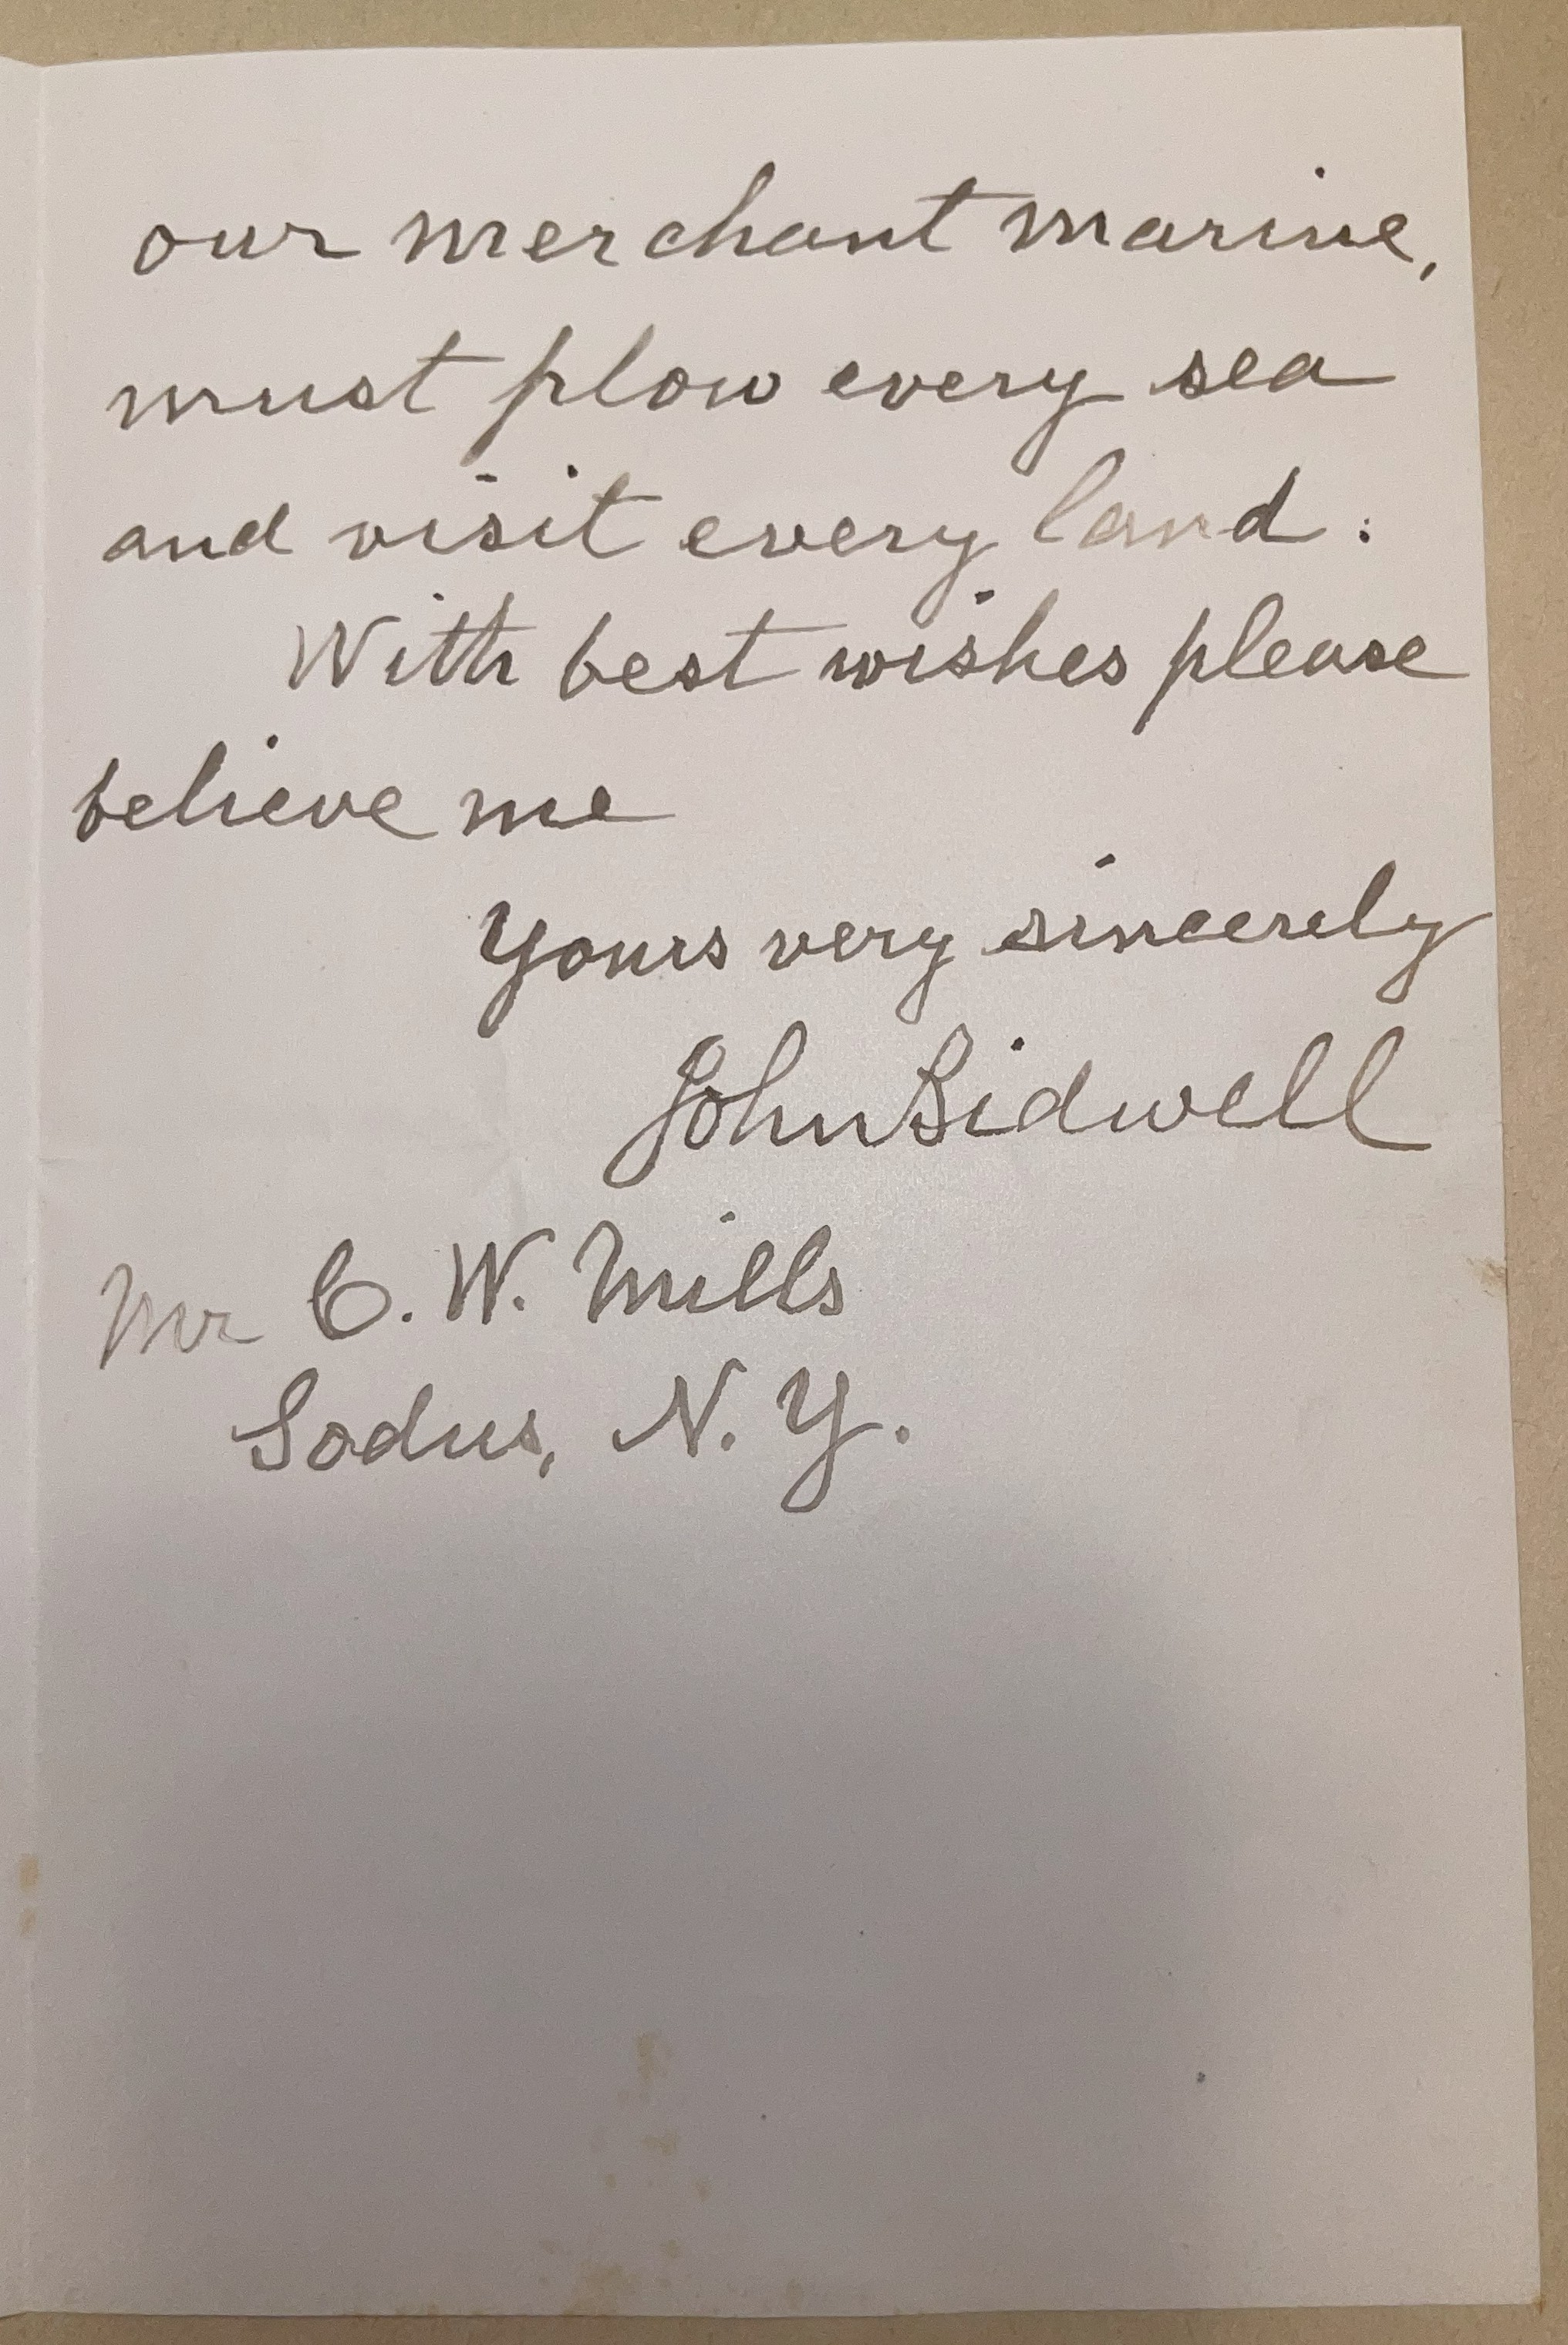 our merchant marine,
must plow every sea
and visit every land.
With best wishes please
believe me
Yours very sincerely
John Bidwell
Mr C. W. Mills
Sodus, N. Y.